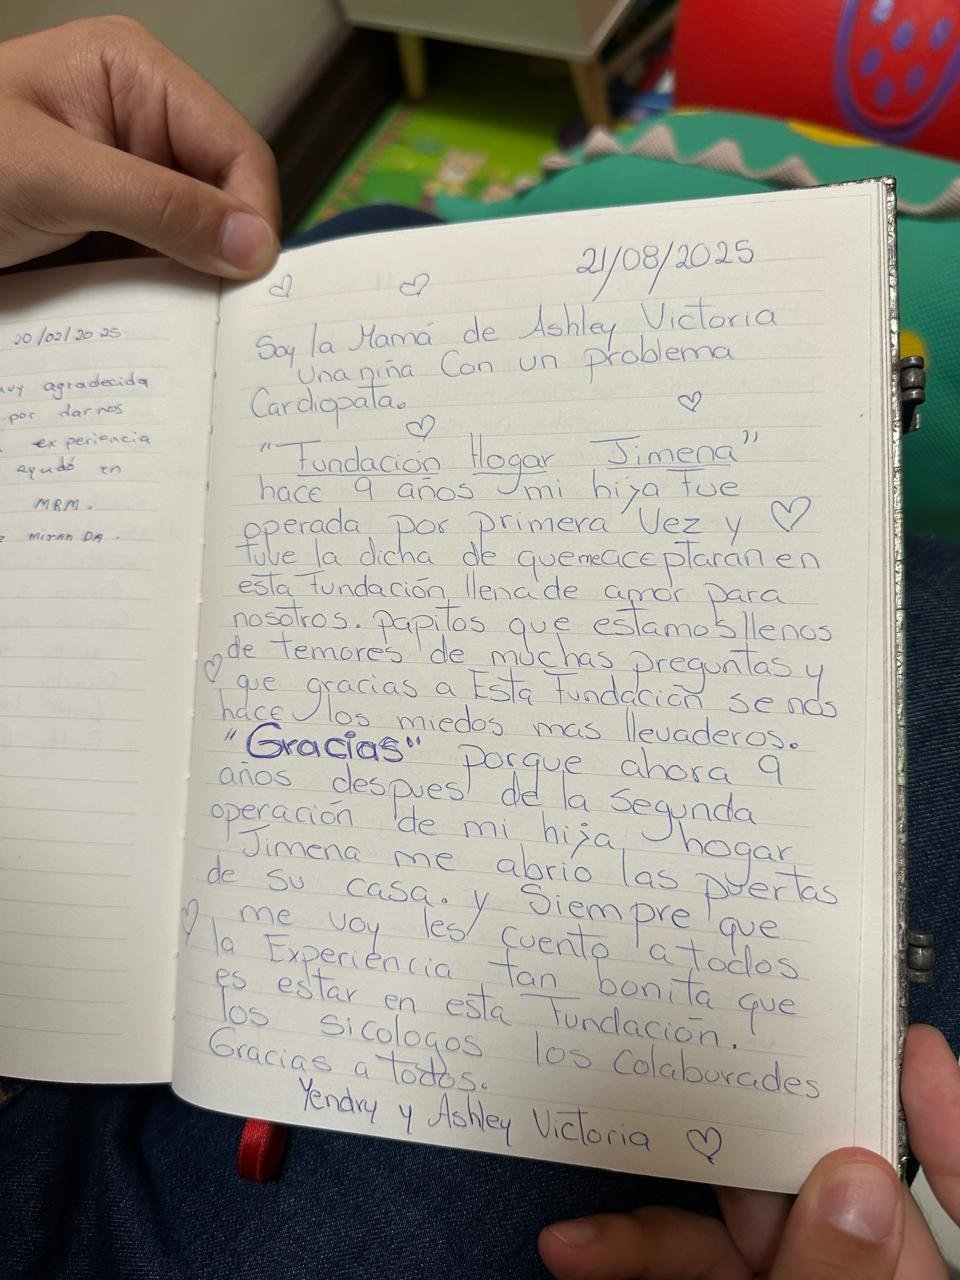 20/02/2025.
agradecida
por darnos
experiencia
ayudó en
MRM.
21/08/2025
Soy la Mamá de Ashley Victoria
una niña Con un problema
Cardiopata.
"Fundación Hogar Jimena"
hace 9 años mi hija fue
operada por primera Vez y
tuve la dicha de que me aceptaran en
esta fundación llena de amor para
nosotros. papitos que estamos llenos
de temores de muchas preguntas y
que gracias a Esta Fundación se nos
hace los miedos mas llevaderos.
"Gracias" porque ahora 9
años despues de la segunda
operación de mi hija, hogar
Jimena me abrio las puertas
de su casa. y Siempre que
me voy les cuento a todos
la Experiencia tan bonita que
es estar en esta Fundación.
los sicologos los colaborades
Gracias a todos.
Yendry y Ashley Victoria